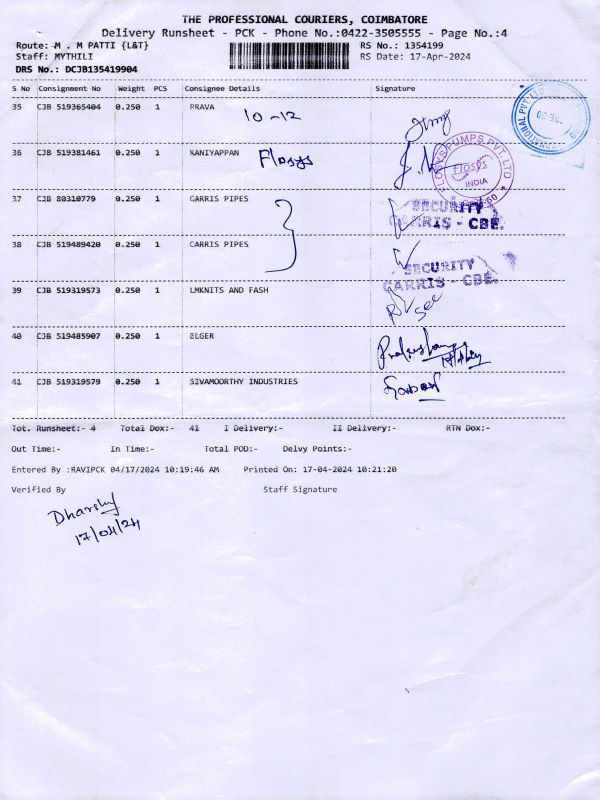 THE PROFESSIONAL COURIERS, COIMBATORE
Delivery Runsheet - PCK - Phone No.:0422-3505555 - Page No.:4
Route: M . M PATTI {L&T} RS No.: 1354199
Staff: MYTHILI RS Date: 17-Apr-2024
DRS No.: DCJB135419904
S No Consignment No Weight PCS Consignee Details Signature
35 CJB 519365404 0.250 1 PRAVA
10-12
36 CJB 519381461 0.250 1 KANIYAPPAN Flosys
FLOSYS PUMPS PVT. LTD
FLOSYS
INDIA
37 CJB 80310779 0.250 1 GARRIS PIPES
SECURITY
CARRIS - CBE.
38 CJB 519489420 0.250 1 CARRIS PIPES
SECURITY
CARRIS - CBE.
39 CJB 519319573 0.250 1 LMKNITS AND FASH
40 CJB 519485907 0.250 1 ELGER
41 CJB 519319579 0.250 1 SIVAMOORTHY INDUSTRIES
Tot. Runsheet:- 4 Total Dox:- 41 I Delivery:- II Delivery:- RTN Dox:-
Out Time:- In Time:- Total POD:- Delvy Points:-
Entered By :RAVIPCK 04/17/2024 10:19:46 AM Printed On: 17-04-2024 10:21:20
Verified By Staff Signature
17/04/24